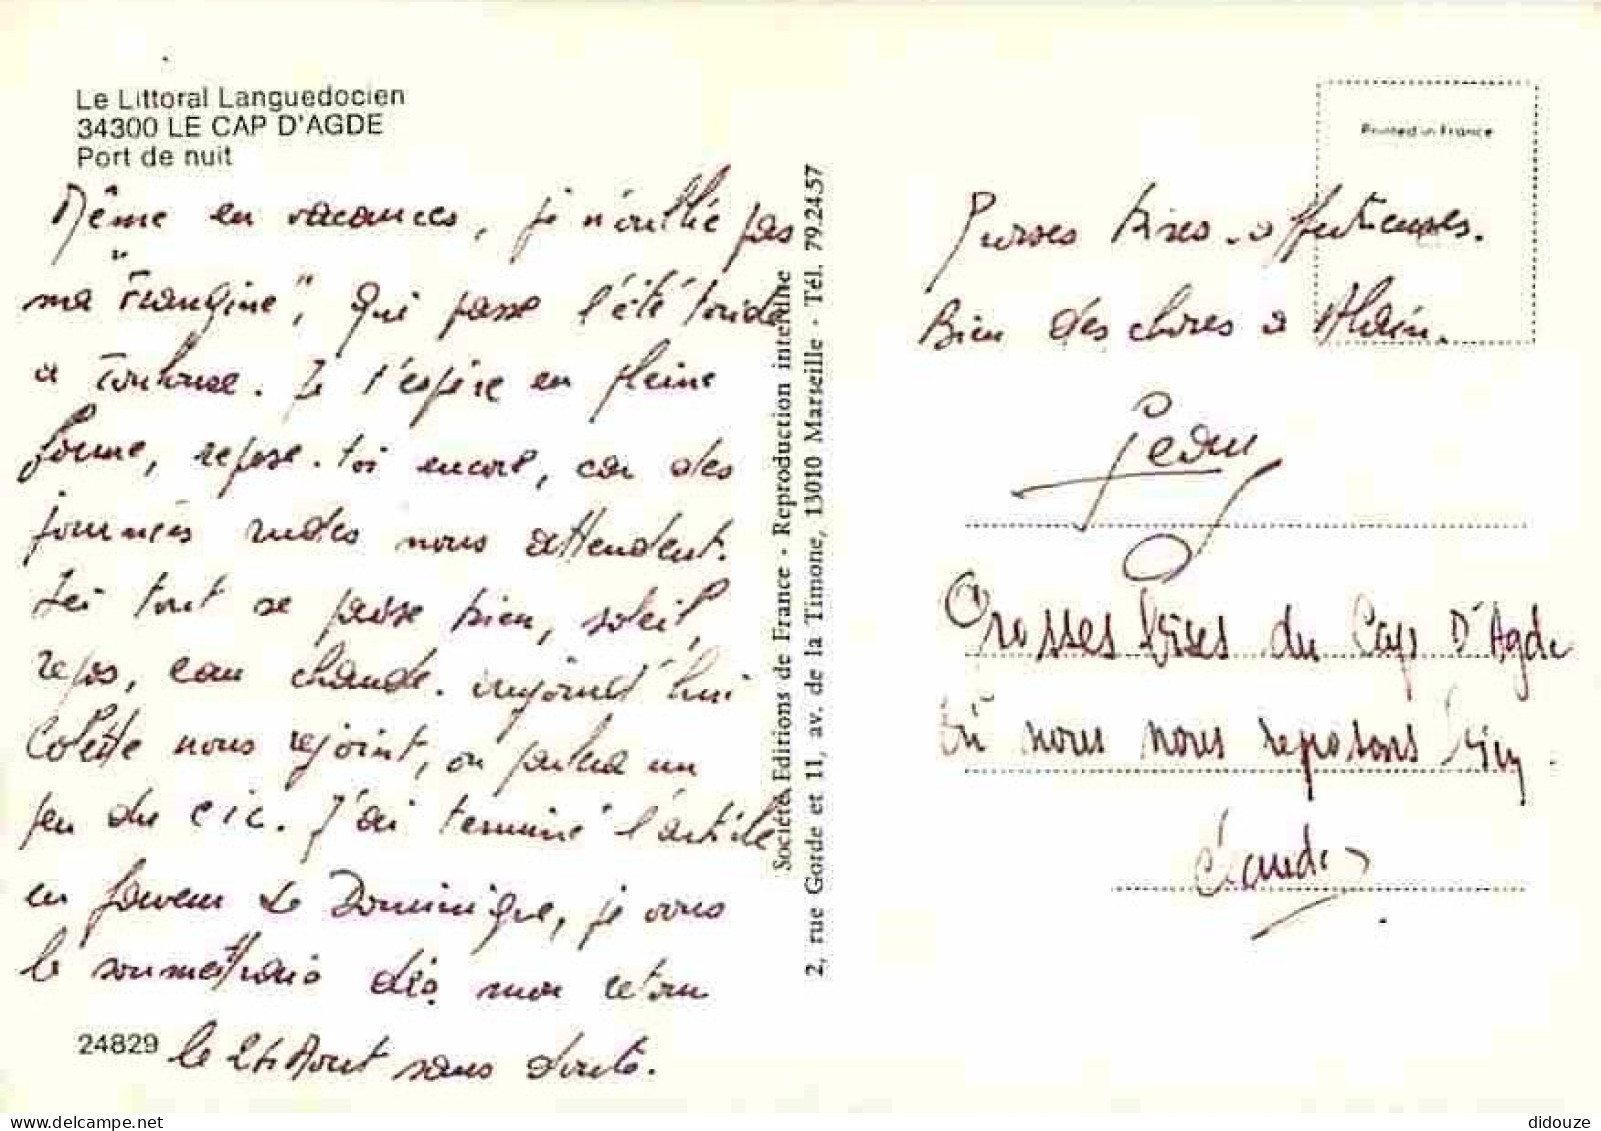 Le Littoral Languedocien
34300 LE CAP D'AGDE
Port de nuit
Même en vacances, je n'oublie pas
ma "Frangine", qui passe l'été torride
a Toulouse. Je t'espère en pleine
forme, repose-toi encore, car des
journées rudes nous attendent.
Ici tout se passe bien, soleil,
repos, eau chaude. Aujourd'hui
Colette nous rejoint, on parlera un
peu du CIC. J'ai terminé l'article
en faveur de Dominique, je vous
le soumettrais dès mon retour
le 24 Aout sans doute.
24829
Société Editions de France - Reproduction interdite
2, rue Gorde et 11, av. de la Timone, 13010 Marseille - Tél. 79.24.57
Printed in France
Bises affectueuses.
Bien des choses a Alain.
Grosses bises du Cap D'Agde
Où nous nous reposons bien.
Claude
didouze